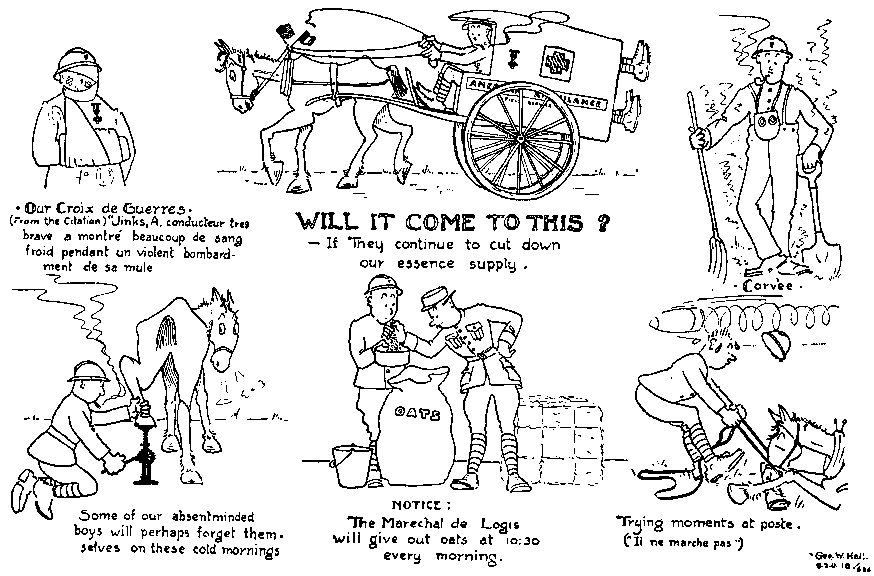 • Our Croix de Guerres.
(From the Citation) "Jinks, A. conducteur tres
brave a montré beaucoup de sang
froid pendant un violent bombard-
ment de sa mule
AMERICAN AMBULANCE
WILL IT COME TO THIS ?
— If They continue to cut down
our essence supply.
- Corvèe -
Some of our absentminded
boys will perhaps forget them-
selves on these cold mornings
OATS
NOTICE :
The Marechal de Logis
will give out oats at 10:30
every morning.
Trying moments at poste.
("Il ne marche pas")
Geo. W. Hall.